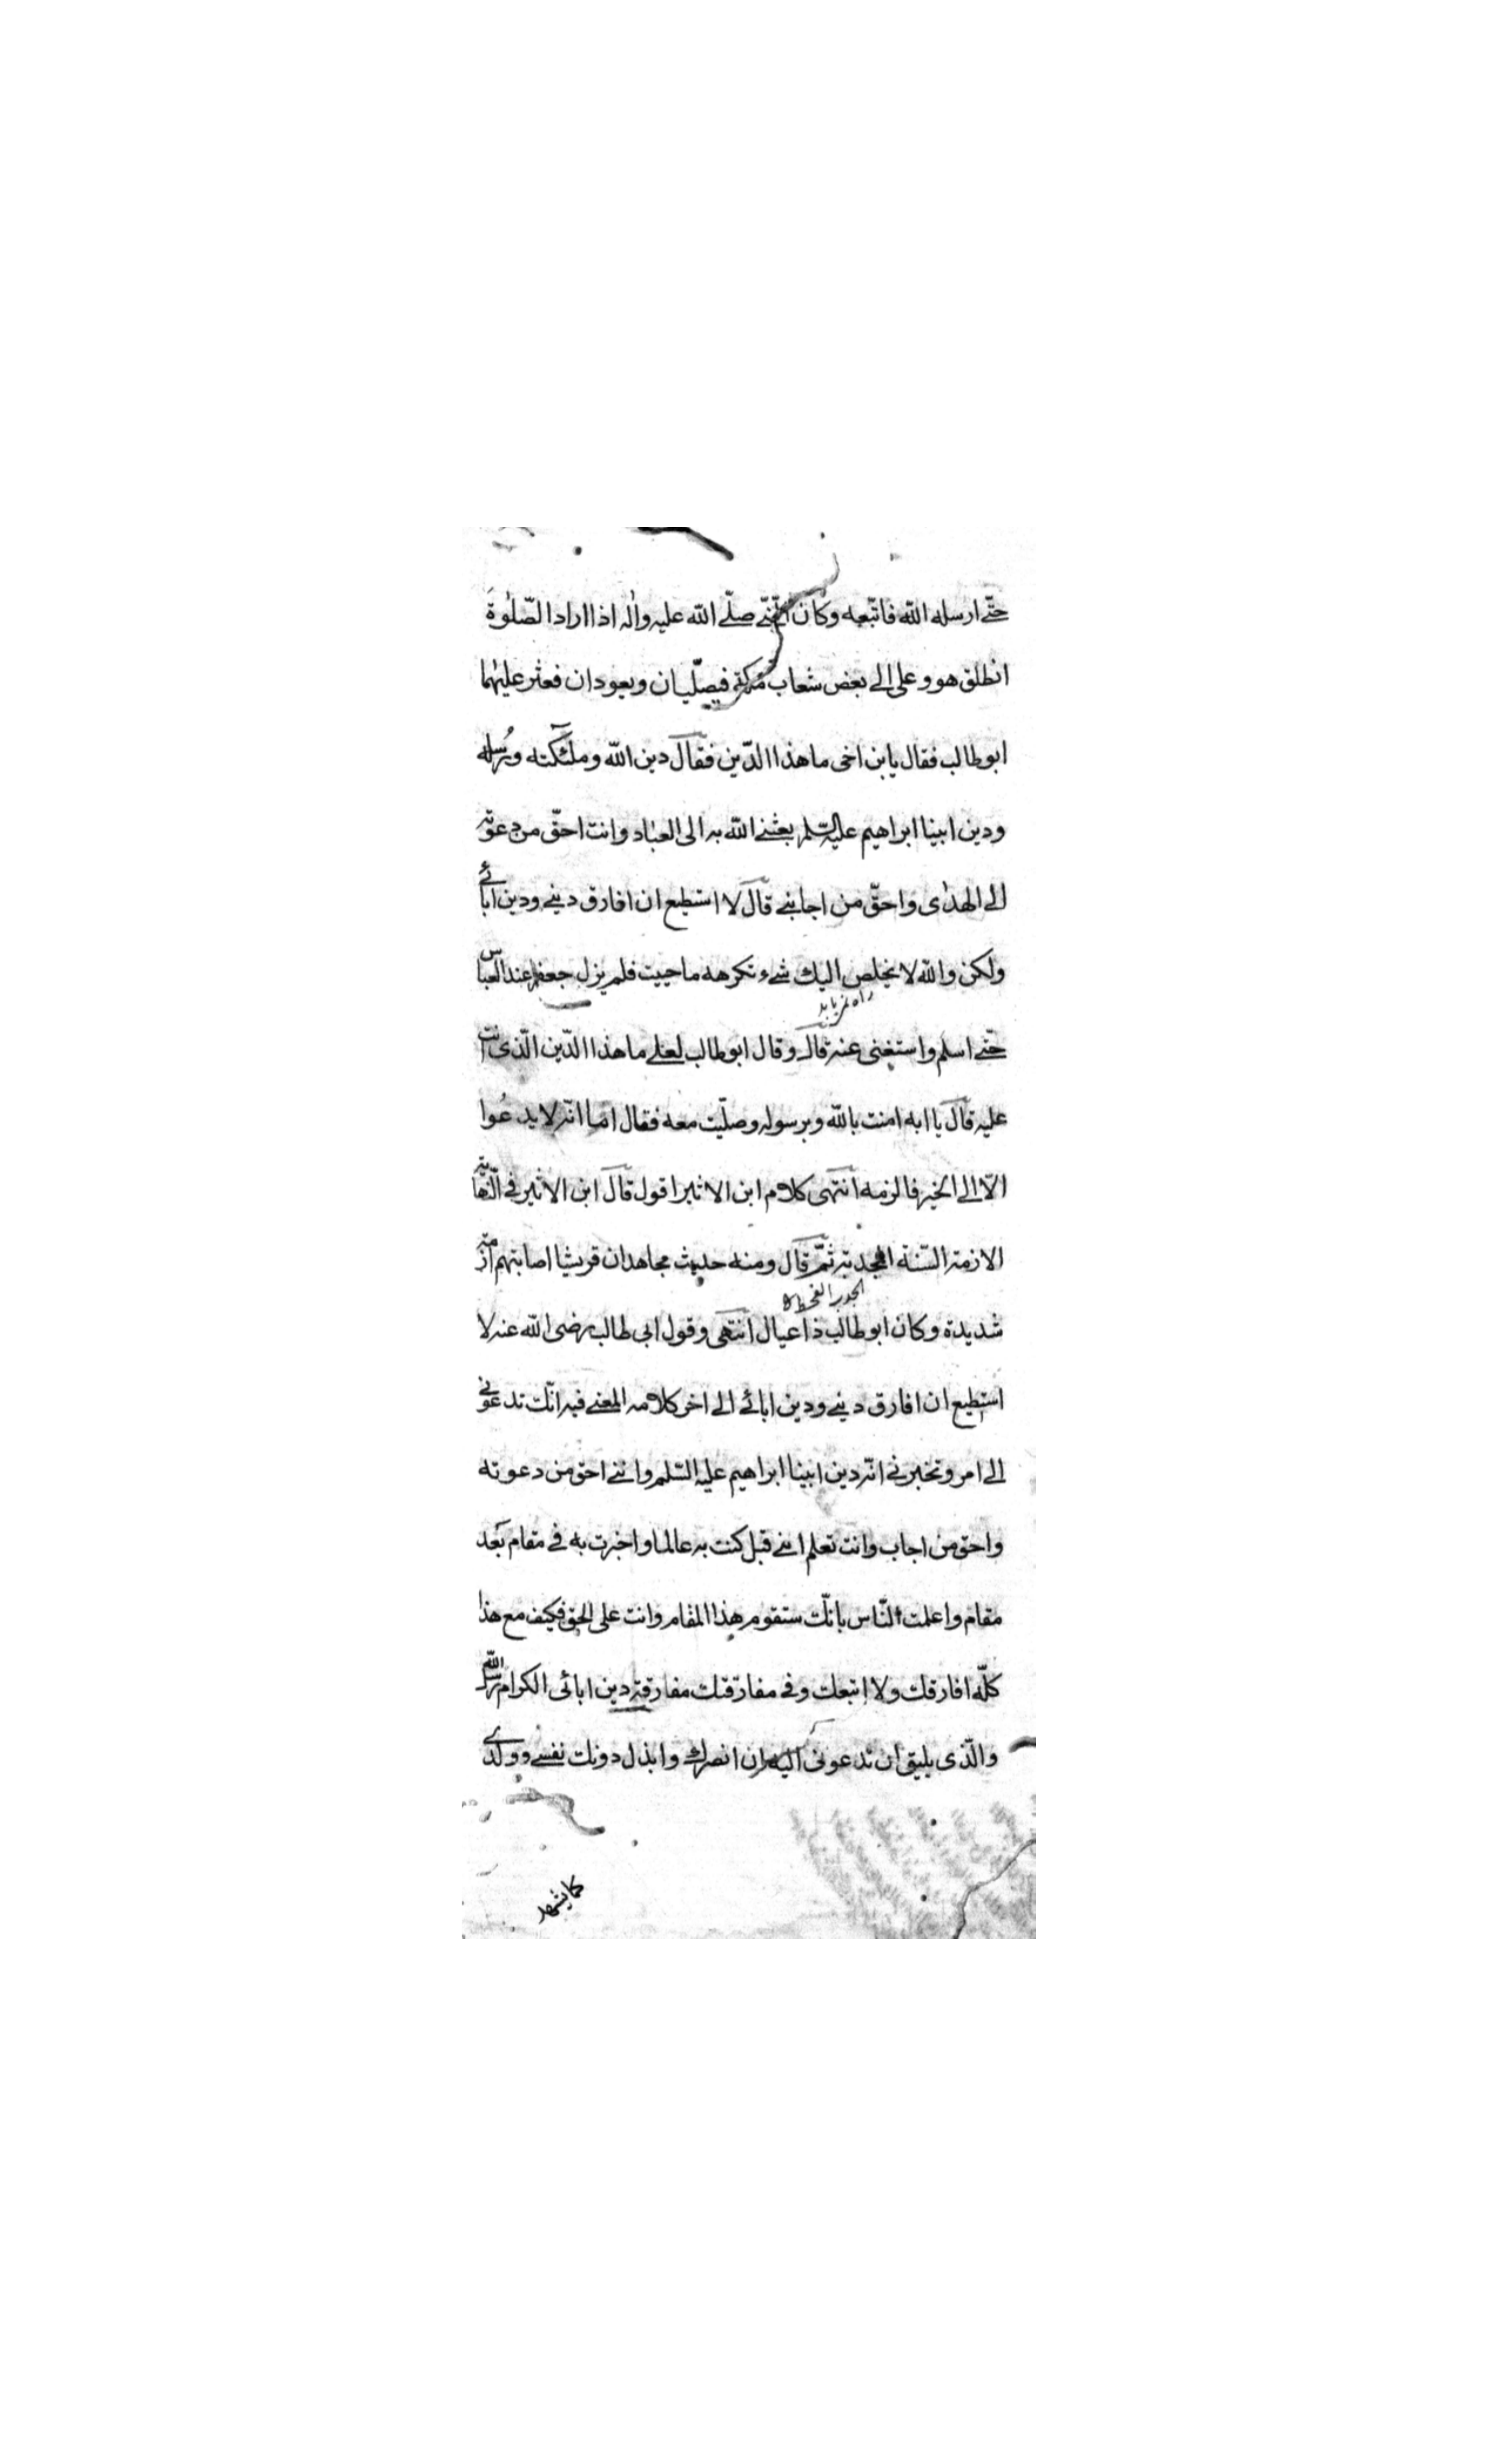 حتّى ارسله اللّه فاتّبعه وكان النّبىّ صلّى اللّه عليه واٰله اذا اراد الصّلٰوة
انطلق هو وعلى الى بعض شعاب مكّة فيصلّيان ويعودان فعثر عليهما
ابوطالب فقال يابن اخى ما هذا الدّين فقال دين اللّه وملٰئكته ورُسله
ودين ابينا ابراهيم عليه السّلم بعثنى اللّه به الى العبٰاد وانت احقّ من دعوته
الى الهدٰى واحقّ من اجابنى قال لا استطيع ان افارق دينى ودين ابائى
ولكن واللّه لا يخلص اليك شىء تكرهه ما حييت فلم يزل جعفر عند العبّاس
راه نمى يابد
حتّى اسلم واستغنى عنه قال وقال ابوطالب لعلى ما هذا الدّين الّذى انت
عليه قال يا ابه امنت باللّه وبرسوله وصلّيت معه فقال امٰا انّه لا يدعوا
الّا الى الخير فالزمه انتهى كلام ابن الاثير اقول قال ابن الاثير فى النّهاية
الازمة السّنة المجدبة ثمّ قال ومنه حديث مجاهد ان قريشا اصابتهم ازمة
الجدب القحط
شديدة وكان ابوطالب ذا عيال انتهى وقول ابى طالب رضى اللّه عنه لا
استطيع ان افارق دينى ودين ابائى الى اخر كلامه المعنى فيه انّك تدعونى
الى امر وتخبرنى انّه دين ابينا ابراهيم عليه السّلم واننى احق من دعوته
واحق من اجاب وانت تعلم اننى قبل كنت به عالما واخبرت به فى مقام بَعد
مقام واعلمت النّاس بانّك ستقوم هذا المقام وانت على الحق فكيف مع هذا
كلّه افارقك ولا اتبعك وفى مفارقتك مفارقة دين ابائى الكرام رسل اللّه
والّذى يليق ان تدعونى اليه ان انصرك وابذل دونك نفسى وولدى
كما يشهد